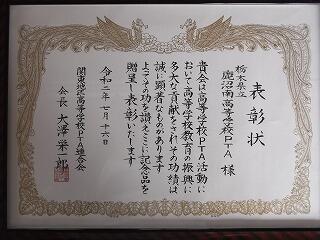 表彰状
栃木県立
鹿沼南高等学校PTA 様
貴会は高等学校PTA活動に
おいて高等学校教育の振興に
多大な貢献をされその功績は
誠に顕著なものがあります
よってその功を讃えここに記念品を
贈呈し表彰いたします
令和二年七月十六日
関東地区高等学校PTA連合会
会長 大澤 晋一郎